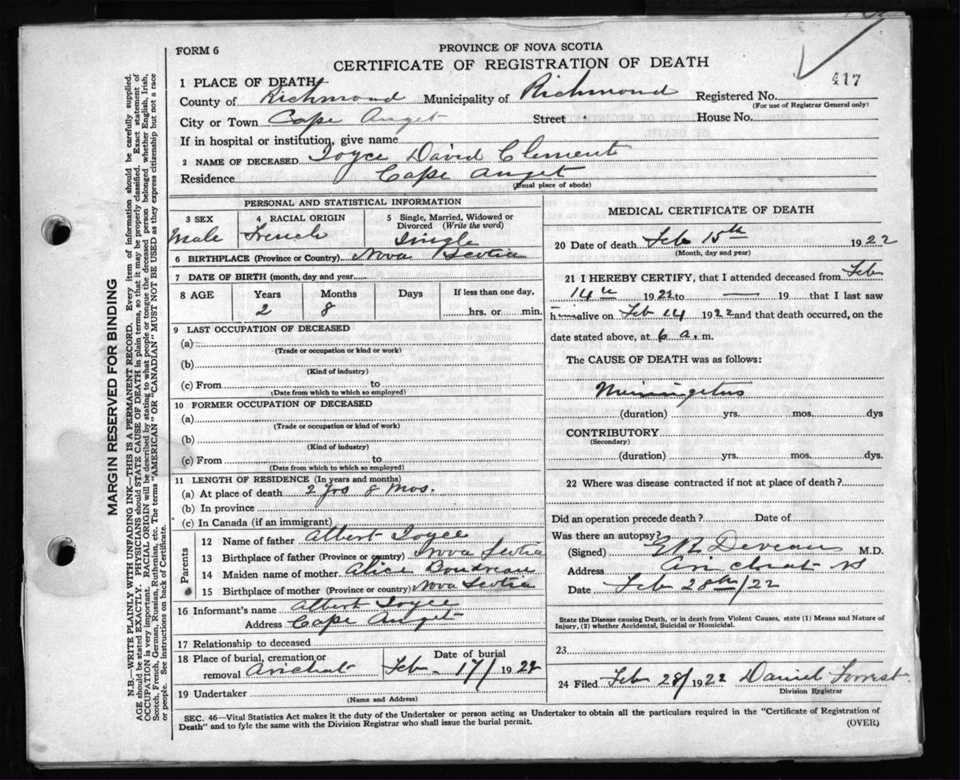 417
FORM 6
PROVINCE OF NOVA SCOTIA
CERTIFICATE OF REGISTRATION OF DEATH
1 PLACE OF DEATH
County of Richmond Municipality of Richmond Registered No.
(For use of Registrar General only)
City or Town Cape Auget Street House No.
If in hospital or institution, give name
2 NAME OF DECEASED Joyce David Clement
Residence Cape Auget
(Usual place of abode)
PERSONAL AND STATISTICAL INFORMATION
3 SEX Male
4 RACIAL ORIGIN French
5 Single, Married, Widowed or Divorced (Write the word) Single
6 BIRTHPLACE (Province or Country) Nova Scotia
7 DATE OF BIRTH (month, day and year)
8 AGE Years Months Days If less than one day,
2 8 hrs. or min.
9 LAST OCCUPATION OF DECEASED
(a)
(Trade or occupation or kind or work)
(b)
(Kind of industry)
(c) From to
(Date from which to which so employed)
10 FORMER OCCUPATION OF DECEASED
(a)
(Trade or occupation or kind of work)
(b)
(Kind of industry)
(c) From to
(Date from which to which so employed)
11 LENGTH OF RESIDENCE (In years and months)
(a) At place of death 2 yrs 8 mos.
(b) In province
(c) In Canada (if an immigrant)
Parents
12 Name of father Albert Joyce
13 Birthplace of father (Province or country) Nova Scotia
14 Maiden name of mother Alice Boudreau
15 Birthplace of mother (Province or country) Nova Scotia
16 Informant's name Albert Joyce
Address Cape Auget
17 Relationship to deceased
18 Place of burial, cremation or removal Arichat Date of burial Feb. 17/1922
19 Undertaker
(Name and Address)
MEDICAL CERTIFICATE OF DEATH
20 Date of death Feb 15th 1922
(Month, day and year)
21 I HEREBY CERTIFY, that I attended deceased from Feb
14th 1922 to — 19 that I last saw
h alive on Feb 14 1922 and that death occurred, on the
date stated above, at 6 a. m.
The CAUSE OF DEATH was as follows:
(duration) yrs. mos. dys
CONTRIBUTORY
(Secondary)
(duration) yrs. mos. dys.
22 Where was disease contracted if not at place of death?
Did an operation precede death? Date of
Was there an autopsy?
(Signed) Deveau M.D.
Address Arichat NS
Date Feb 28th/22
State the Disease causing Death, or in death from Violent Causes, state (1) Means and Nature of
Injury, (2) whether Accidental, Suicidal or Homicidal.
23
24 Filed Feb 28/1922 Daniel Forrest
Division Registrar
SEC. 46—Vital Statistics Act makes it the duty of the Undertaker or person acting as Undertaker to obtain all the particulars required in the "Certificate of Registration of
Death" and to fyle the same with the Division Registrar who shall issue the burial permit.
(OVER)
MARGIN RESERVED FOR BINDING
N.B.—WRITE PLAINLY WITH UNFADING INK—THIS IS A PERMANENT RECORD. Every item of information should be carefully supplied.
AGE should be stated EXACTLY. PHYSICIANS should STATE CAUSE OF DEATH in plain terms, so that it may be properly classified. Exact statement of
OCCUPATION is very important. RACIAL ORIGIN will be described by stating to what people or tongue the deceased person belonged whether English, Irish,
Scotch, French, German, Russian, Ruthenian, etc. The terms "AMERICAN" OR "CANADIAN" MUST NOT BE USED as they express citizenship but not a race
or people. See instructions on back of Certificate.